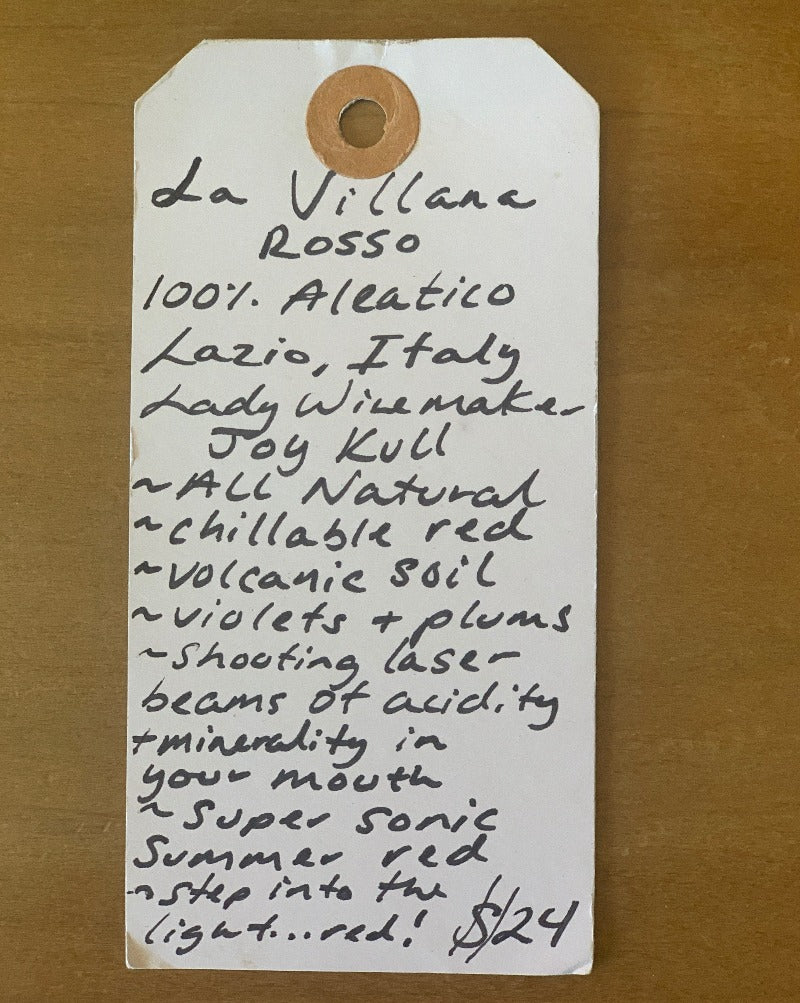 La Villana
Rosso
100% Aleatico
Lazio, Italy
Lady Winemaker
Joy Kull
~All Natural
~chillable red
~volcanic soil
~violets + plums
~shooting laser
beams of acidity
+minerality in
your mouth
~Super sonic
Summer red
~step into the
light...red! $24